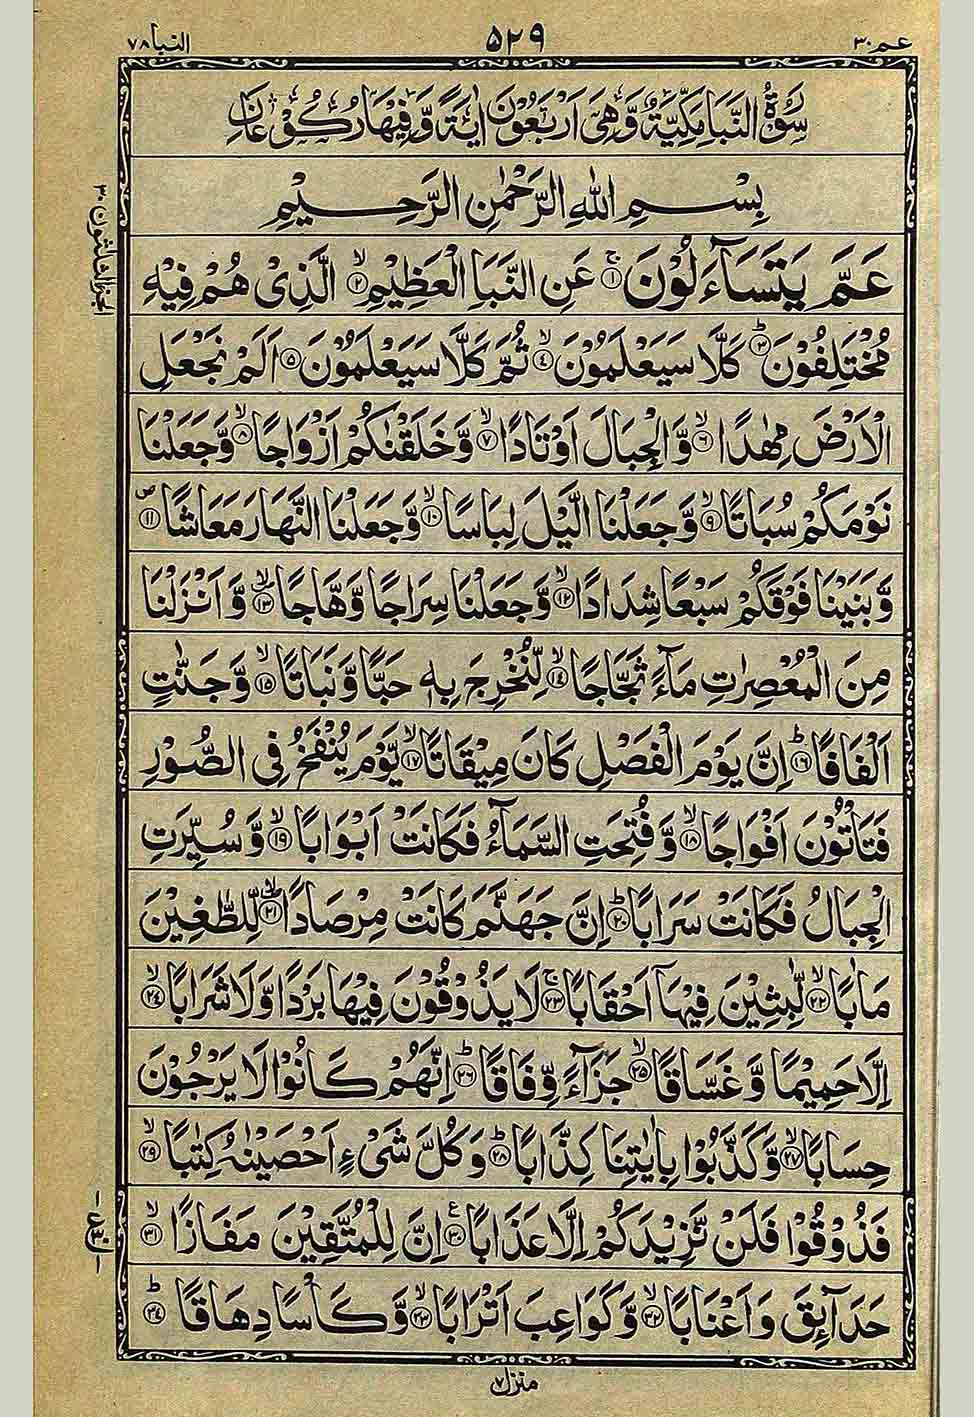 عم ٣٠
٥٢٩
النبا ٧٨
سُوۡرَةُ النَّبَاِ مَكِّيَّةٌ وَّهِىَ اَرۡبَعُوۡنَ اٰيَةً وَّفِيۡهَا رُكُوۡعَانِ
بِسۡمِ اللّٰهِ الرَّحۡمٰنِ الرَّحِيۡمِ
عَمَّ يَتَسَآءَلُوۡنَ ۚ‏﴿۱﴾ عَنِ النَّبَاِ الۡعَظِيۡمِۙ‏﴿۲﴾ الَّذِىۡ هُمۡ فِيۡهِ
مُخۡتَلِفُوۡنَؕ‏﴿۳﴾ كَلَّا سَيَعۡلَمُوۡنَۙ‏﴿۴﴾ ثُمَّ كَلَّا سَيَعۡلَمُوۡنَ‏﴿۵﴾ اَلَمۡ نَجۡعَلِ
الۡاَرۡضَ مِهٰدًاۙ‏﴿۶﴾ وَّالۡجِبَالَ اَوۡتَادًاۙ‏﴿۷﴾ وَّخَلَقۡنٰكُمۡ اَزۡوَاجًاۙ‏﴿۸﴾ وَّجَعَلۡنَا
نَوۡمَكُمۡ سُبَاتًاۙ‏﴿۹﴾ وَّجَعَلۡنَا الَّيۡلَ لِبَاسًاۙ‏﴿۱۰﴾ وَّجَعَلۡنَا النَّهَارَ مَعَاشًا﴿۱۱﴾
وَّبَنَيۡنَا فَوۡقَكُمۡ سَبۡعًا شِدَادًاۙ‏﴿۱۲﴾ وَّجَعَلۡنَا سِرَاجًا وَّهَّاجًاۙ‏﴿۱۳﴾ وَّاَنۡزَلۡنَا
مِنَ الۡمُعۡصِرٰتِ مَآءً ثَجَّاجًاۙ‏﴿۱۴﴾ لِّنُخۡرِجَ بِهٖ حَبًّا وَّنَبَاتًاۙ‏﴿۱۵﴾ وَّجَنّٰتٍ
اَلۡفَافًاؕ‏﴿۱۶﴾ اِنَّ يَوۡمَ الۡفَصۡلِ كَانَ مِيۡقَاتًاۙ‏﴿۱۷﴾ يَّوۡمَ يُنۡفَخُ فِى الصُّوۡرِ
فَتَاۡتُوۡنَ اَفۡوَاجًاۙ‏﴿۱۸﴾ وَّفُتِحَتِ السَّمَآءُ فَكَانَتۡ اَبۡوَابًاۙ‏﴿۱۹﴾ وَّسُيِّرَتِ
الۡجِبَالُ فَكَانَتۡ سَرَابًاؕ‏﴿۲۰﴾ اِنَّ جَهَنَّمَ كَانَتۡ مِرۡصَادًاۙ‏﴿۲۱﴾ لِّلطّٰغِيۡنَ
مَاٰبًاۙ‏﴿۲۲﴾ لّٰبِثِيۡنَ فِيۡهَاۤ اَحۡقَابًا‌ۚ‏﴿۲۳﴾ لَا يَذُوۡقُوۡنَ فِيۡهَا بَرۡدًا وَّلَا شَرَابًاۙ‏﴿۲۴﴾
اِلَّا حَمِيۡمًا وَّغَسَّاقًاۙ‏﴿۲۵﴾ جَزَآءً وِّفَاقًاؕ‏﴿۲۶﴾ اِنَّهُمۡ كَانُوۡا لَا يَرۡجُوۡنَ
حِسَابًاۙ‏﴿۲۷﴾ وَّكَذَّبُوۡا بِاٰيٰتِنَا كِذَّابًاؕ‏﴿۲۸﴾ وَكُلَّ شَىۡءٍ اَحۡصَيۡنٰهُ كِتٰبًاۙ‏﴿۲۹﴾
فَذُوۡقُوۡا فَلَنۡ نَّزِيۡدَكُمۡ اِلَّا عَذَابًا﴿۳۰﴾ اِنَّ لِلۡمُتَّقِيۡنَ مَفَازًاۙ‏﴿۳۱﴾
حَدَآئِقَ وَاَعۡنَابًاۙ‏﴿۳۲﴾ وَّكَوَاعِبَ اَتۡرَابًاۙ‏﴿۳۳﴾ وَّكَاۡسًا دِهَاقًاؕ‏﴿۳۴﴾
الجزء الثلثون ٣٠
منزل ٧